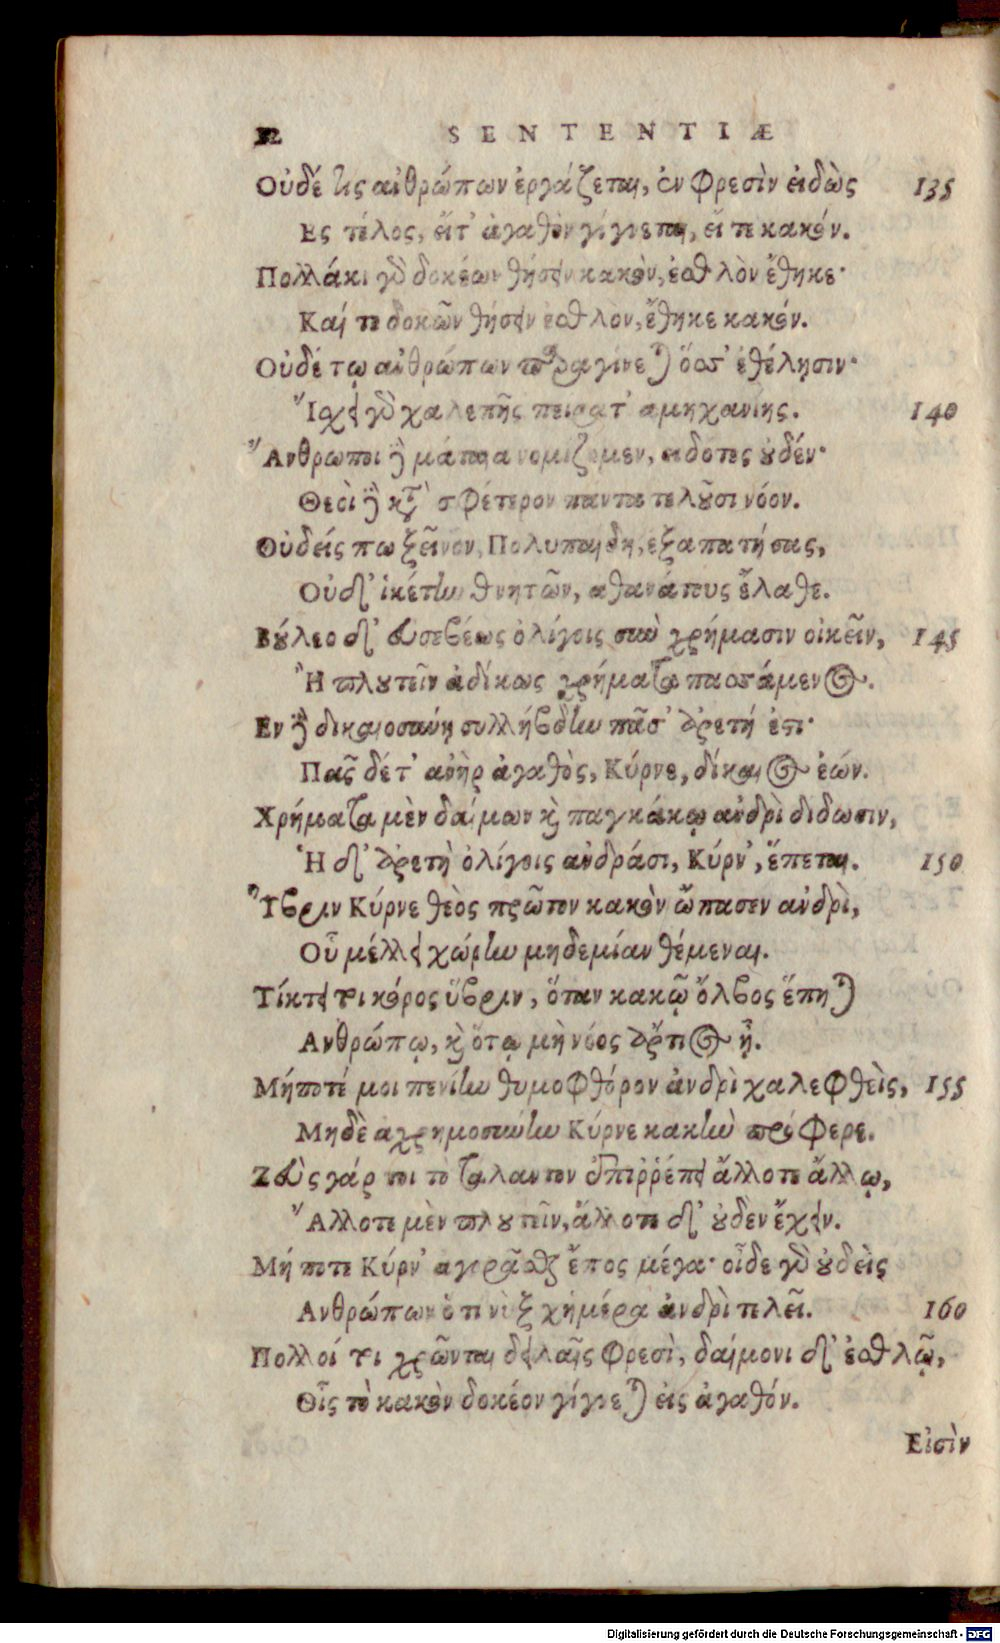 12 SENTENTIÆ
Οὐδέ τις ἀνθρώπων ἐργάζεται, ἐν φρεσὶν εἰδὼς 135
Ες τέλος, εἴτ' ἀγαθὸν γίγνεται, εἴτε κακόν.
Πολλάκι γὰρ δοκέων θήσειν κακὸν, ἐσθλὸν ἔθηκε·
Καί τε δοκῶν θήσειν ἐσθλὸν, ἔθηκε κακόν.
Οὐδέ τῳ ἀνθρώπων παραγίνεται ὅσσ' ἐθέλῃσιν·
Ἴσχει γὰρ χαλεπῆς πείρατ' ἀμηχανίης. 140
Ἄνθρωποι δὲ μάταια νομίζομεν, εἰδότες οὐδέν·
Θεοὶ δὲ κατὰ σφέτερον πάντα τελοῦσι νόον.
Οὐδείς πω ξεῖνον, Πολυπαιδη, ἐξαπατήσας,
Οὐδ' ἱκέτην θνητῶν, ἀθανάτους ἔλαθε.
Βούλεο δ' εὐσεβέως ὀλίγοις σὺν χρήμασιν οἰκεῖν, 145
Ἢ πλουτεῖν ἀδίκως χρήματα πασσάμενος.
Εν δὲ δικαιοσύνῃ συλλήβδην πᾶσ' ἀρετή ἐστι·
Πᾶς δέ τ' ἀνὴρ ἀγαθὸς, Κύρνε, δίκαιος ἐών.
Χρήματα μὲν δαίμων καὶ παγκάκῳ ἀνδρὶ δίδωσιν,
Ἡ δ' ἀρετὴ ὀλίγοις ἀνδράσι, Κύρν', ἕπεται. 150
Ὕβριν Κύρνε θεὸς πρῶτον κακὸν ὤπασεν ἀνδρὶ,
Οὗ μέλλει χώρην μηδεμίαν θέμεναι.
Τίκτει τοι κόρος ὕβριν, ὅταν κακῷ ὄλβος ἕπηται
Ανθρώπῳ, καὶ ὅτῳ μὴ νόος ἄρτιος ᾖ.
Μήποτέ μοι πενίην θυμοφθόρον ἀνδρὶ χαλεφθεὶς, 155
Μηδὲ ἀχρημοσύνην Κύρνε κακὴν πρόφερε.
Ζεὺς γάρ τοι τὸ τάλαντον ἐπιῤῥέπει ἄλλοτε ἄλλῳ,
Ἄλλοτε μὲν πλουτεῖν, ἄλλοτε δ' οὐδεν ἔχειν.
Μήποτε Κύρν' ἀγορᾶσθαι ἔπος μέγα· οἶδε γὰρ οὐδεὶς
Ανθρώπων ὅ τι νὺξ χἠμέρα ἀνδρὶ τελεῖ. 160
Πολλοί τοι χρῶνται δειλαῖς φρεσὶ, δαίμονι δ' ἐσθλῷ,
Οἷς τὸ κακὸν δοκέον γίγνεται εἰς ἀγαθόν.
Εἰσὶν
Digitalisierung gefördert durch die Deutsche Forschungsgemeinschaft - DFG